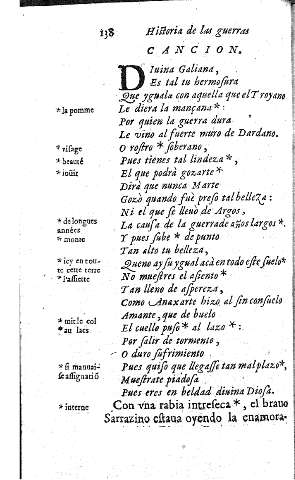 138 Historia de las guerras
CANCION.
DIuina Galiana,
Es tal tu hermosura
Que yguala con aquella que el Troyano
*la pomme Le diera la mançana*:
Por quien la guerra dura
Le vino al fuerte muro de Dardano.
*visage O rostro* soberano,
*beauté Pues tienes tal lindeza*,
*iouir El que podrà gozarte*
Dirà que nunca Marte
Gozò quando fuè preso tal belleza:
Ni el que se lleuò de Argos,
*de longues La causa de la guerra de años largos*.
années
*monte Y pues sube* de punto
Tan alto tu belleza,
*icy en tou- Que no ay su ygual acà en todo este suelo*
te cette terre No muestres el asiento*
*l'assiette Tan lleno de aspereza,
Como Anaxarte hizo al sin consuelo
Amante, que de buelo
*mit le col El cuello puso* al lazo*:
*au lacs Por salir de tormento,
O duro sufrimiento
*si mauuai- Pues quiso que llegasse tan mal plazo*,
se assignatiõ Muestrate piadosa
Pues eres en beldad diuina Diosa.
*interne Con vna rabia intreseca*, el brauo
Sarrazino estaua oyendo la enamora-